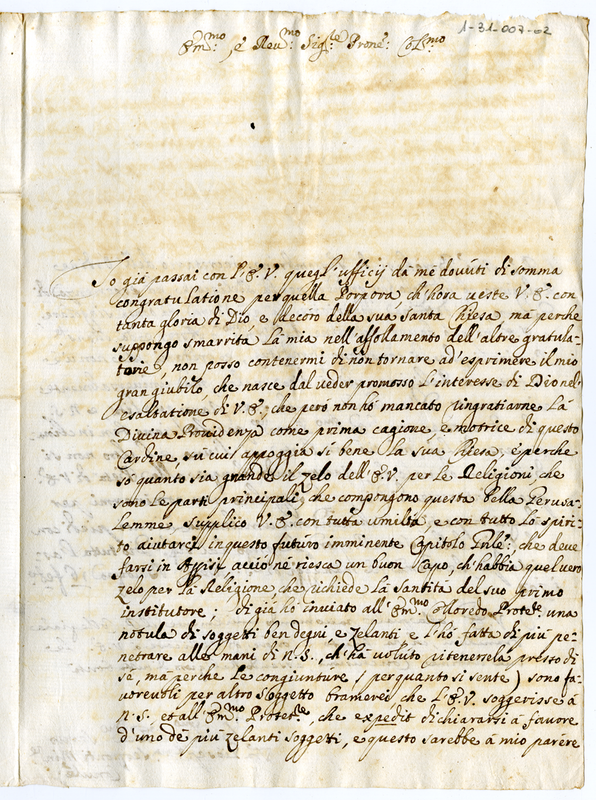 1-31-007-02
Em.mo, e Rev.mo Sig.re Prone: Col.mo
Io già passai con l'E.V. quegl'ufficij da me dovuti di somma
congratulatione per quella Porpora, ch'hora veste V.E. con
tanta gloria di Dio, e decoro della sua Santa Chiesa, ma perche
suppongo smarrita la mia nell'affollamento dell'altre gratula-
torie, non posso contenermi di non tornare ad'esprimere il mio
gran giubilo, che nasce dal veder promosso l'interesse di Dio nel
esaltatione di V.E., che però non hò mancato ringratiarne la
Divina Providenza come prima cagione e motrice di questo
Cardine, sù cui appoggia si bene la sua Chiesa, e perche
sò quanto sia grande il zelo dell'E.V. per le Religioni, che
sono le parti principali, che compongono questa bella Gerusa-
lemme supplico V.E. con tutta umiltà, e con tutto lo spiri-
to aiutarci in questo futuro imminente Capitolo Gnle: che deve
farsi in Assisi acciò ne riesca un buon Capo, ch'habbia quel vero
zelo per la Religione, che richiede la santità del suo primo
institutore; di già hò inviato all'Em.mo Coloredo Protet.re una
notula di soggetti ben degni, e zelanti e l'hò fatta di più pe-
netrare alle mani di N.S., ch'hà voluto ritenersela presso di
sé, mà perche le congiunture (per quanto si sente) sono fa-
vorevoli per altro soggetto bramerei che l'E.V. soggerisse à
N.S. et all'Em.mo Protet.re, che expedit dichiararsi à favore
d'uno de più zelanti soggetti, e questo sarebbe à mio parere